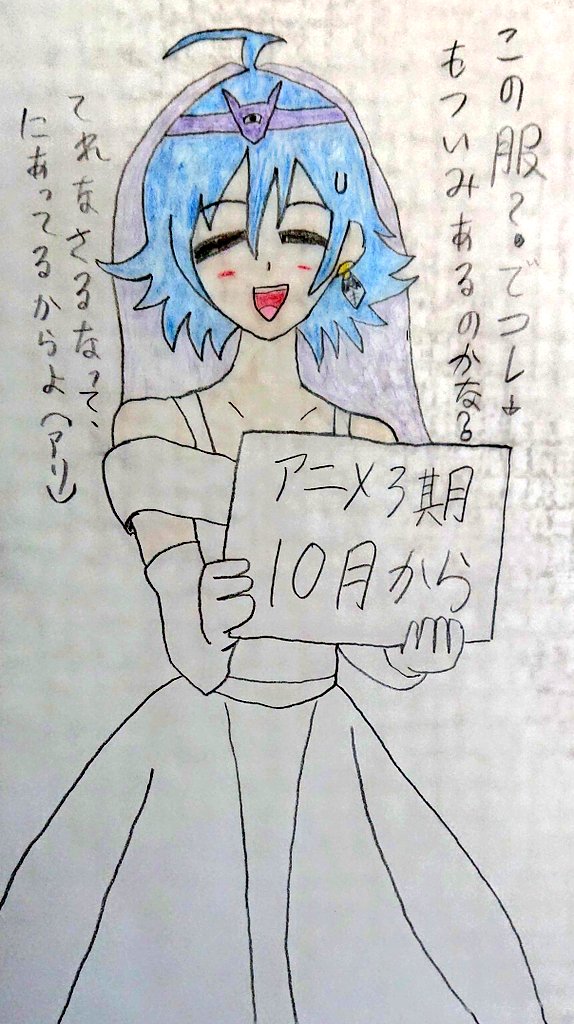 この服?でコレ
もついみあるのかなぁ
アニメ3期
10月から
てれなさるなって、
にあってるからよ(アリ)